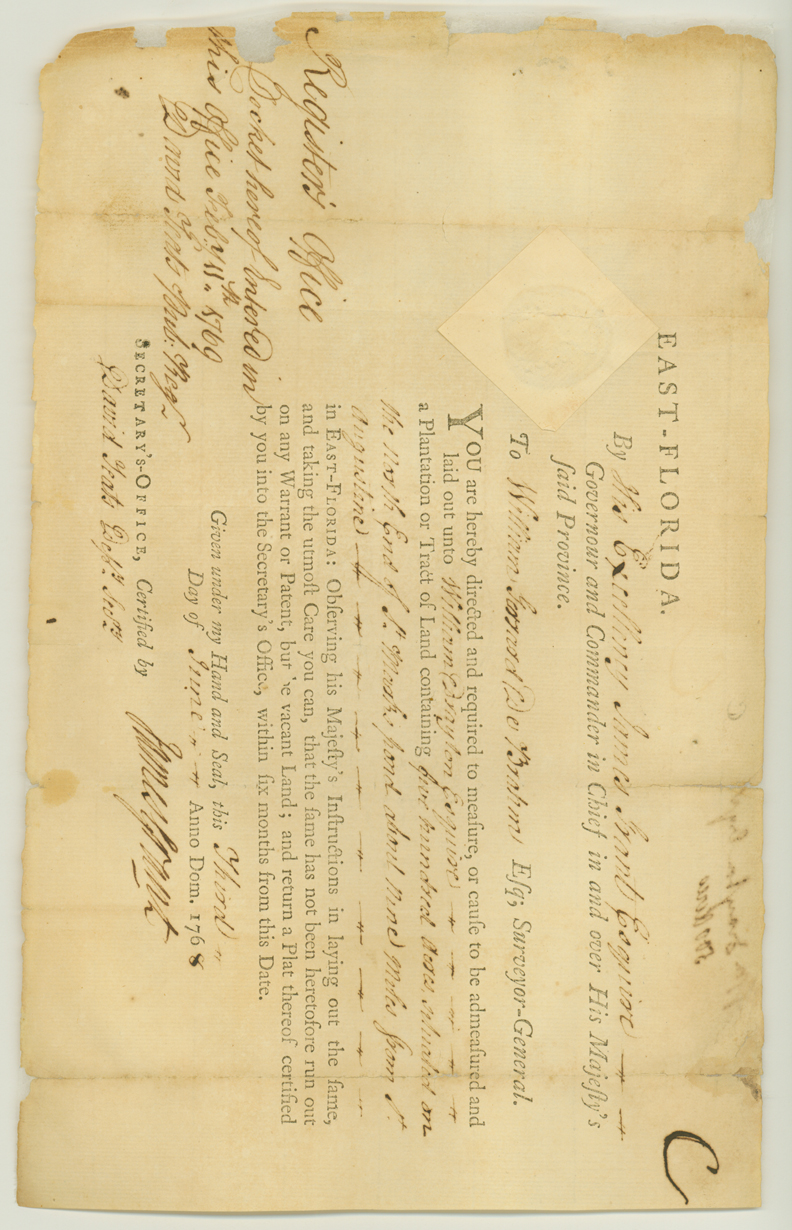 EAST-FLORIDA.
By His Excellency James Grant Esquire
Governour and Commander in Chief in and over His Majeſty's
ſaid Province.
To William Gerrard De Brahm Eſq; Surveyor-General.
YOU are hereby directed and required to meaſure, or cauſe to be admeaſured and
laid out unto William Drayton Esquire
a Plantation or Tract of Land containing five hundred acres situated on
the North End of St. Marks pond about Nine Miles from St.
Augustine
in EAST-FLORIDA: Obſerving his Majeſty's Inſtructions in laying out the ſame,
and taking the utmoſt Care you can, that the ſame has not been heretofore run out
on any Warrant or Patent, but be vacant Land; and return a Plat thereof certified
by you into the Secretary's Office, within ſix months from this Date.
Given under my Hand and Seal, this Third
Day of June Anno Dom. 1768
James Grant
SECRETARY'S-OFFICE, Certified by
David Yeats Depy. Secry.
Registers Office
Docket hereof Entered in
this Office Feby. 11th. 1769
David Yeats Dep. Regr.
C